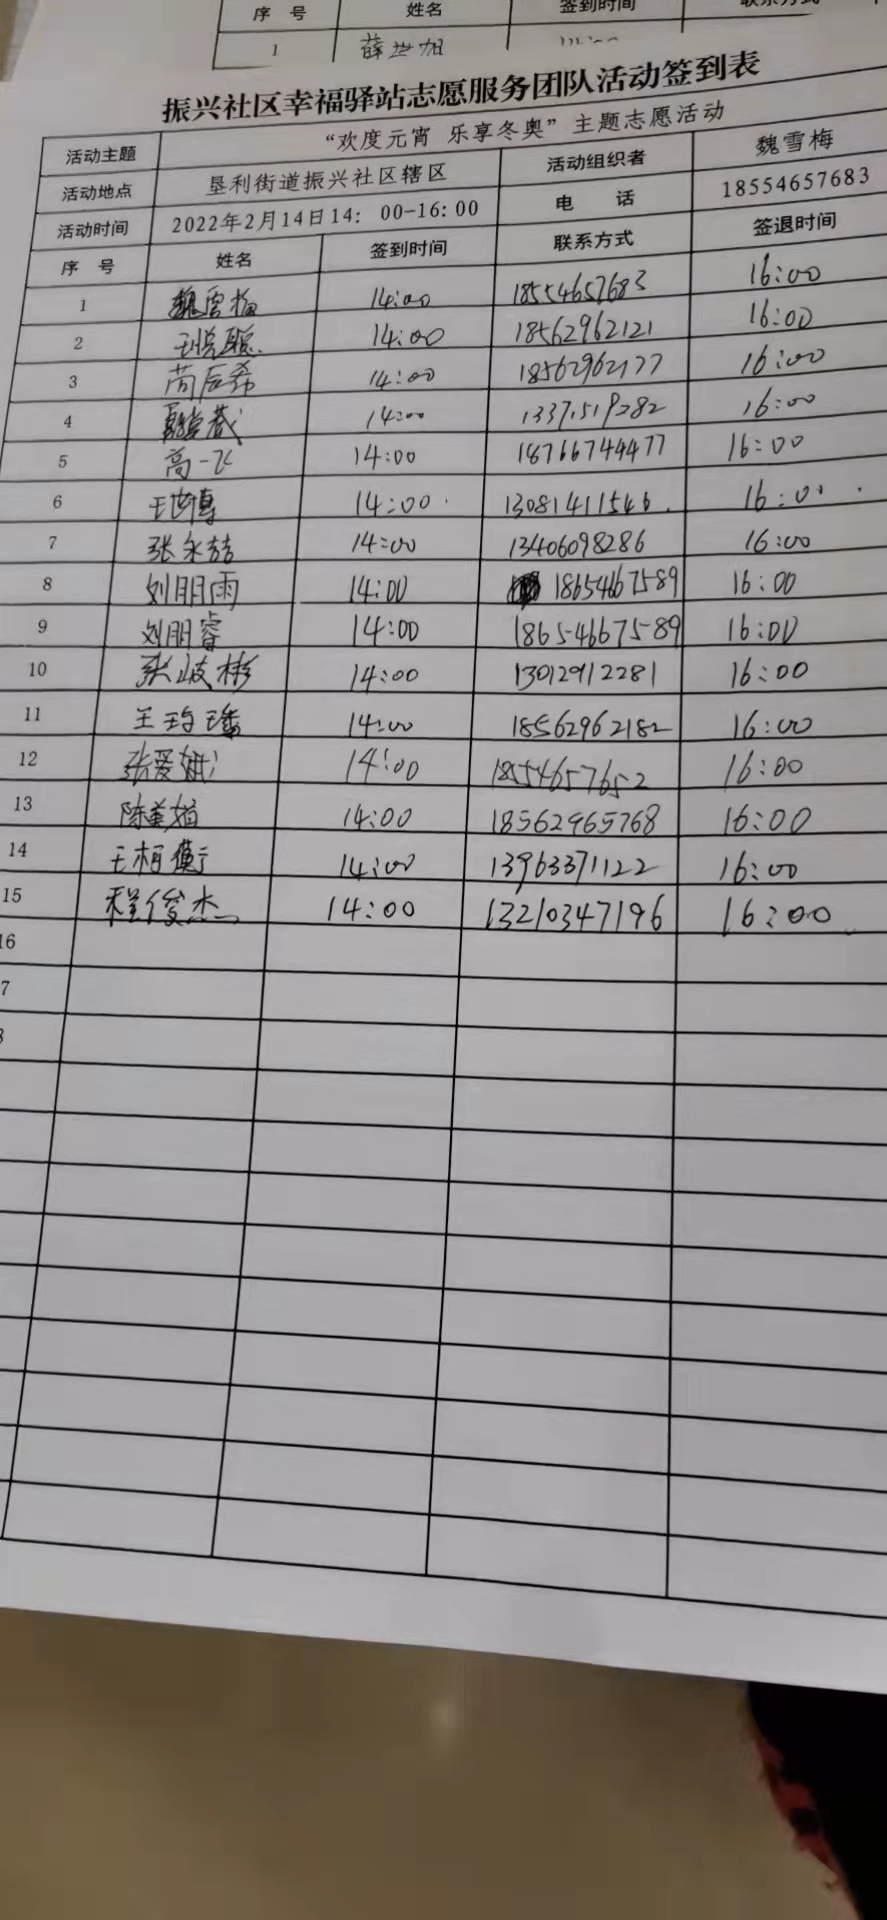 序 号 姓名 签到时间
1 薛世旭
振兴社区幸福驿站志愿服务团队活动签到表
活动主题 “欢度元宵 乐享冬奥”主题志愿活动
活动地点 垦利街道振兴社区辖区 活动组织者 魏雪梅
活动时间 2022年2月14日14：00-16:00 电 话 18554657683
序 号 姓名 签到时间 联系方式 签退时间
1 魏雪梅 14:00 18554657683 16:00
2 14:00 18562962121 16:00
3 14:00 18562962177 16:00
4 14:00 13371519282 16:00
5 高一飞 14:00 18766744477 16:00
6 王世博 14:00 13081411546 16:00
7 张永喆 14:00 13406098286 16:00
8 刘明雨 14:00 18654667589 16:00
9 刘明睿 14:00 18654667589 16:00
10 张岐彬 14:00 13012912281 16:00
11 王玙璠 14:00 18562962182 16:00
12 14:00 18554657652 16:00
13 陈美娟 14:00 18562965768 16:00
14 王柯衡 14:00 13963371122 16:00
15 程俊杰 14:00 13210347196 16:00
16
7